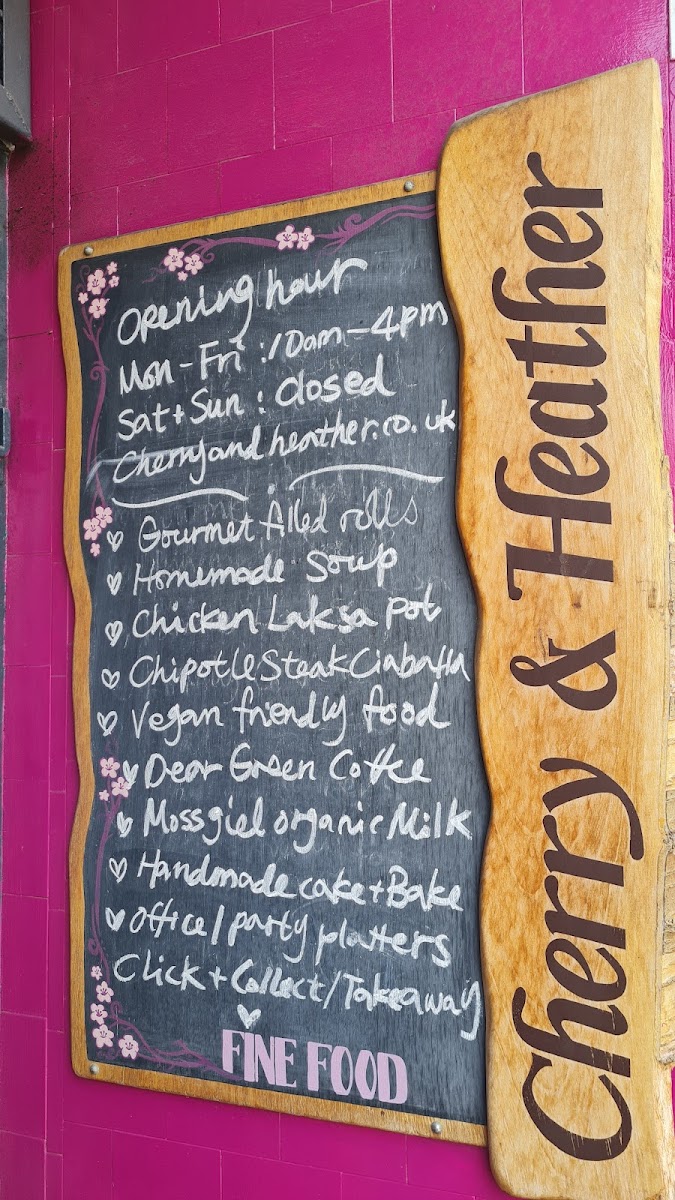 Opening hour
Mon-Fri : 10am-4pm
Sat+Sun : Closed
Cherryandheather.co.uk
Gourmet filled rolls
Homemade Soup
Chicken Laksa Pot
Chipotle Steak Ciabatta
Vegan friendly food
Dear Green Coffee
Mossgiel organic Milk
Handmade cake+Bake
Office/party platters
Click+Collect/Takeaway
FINE FOOD
Cherry & Heather